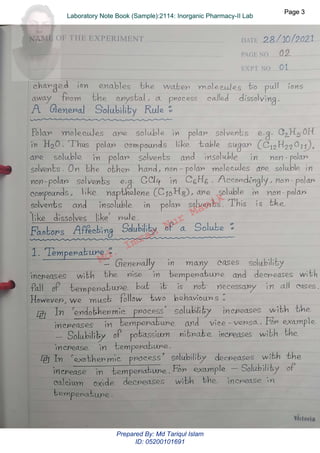 Page 3
Laboratory Note Book (Sample):2114: Inorganic Pharmacy-II Lab
NAME OF THE EXPERIMENT
DATE 28/10/2021
PAGE NO. 02
EXPT NO. 01
charged ion enables the water molecules to pull ions
away from the crystal, a process called dissolving.
A General Solubility Rule :
Polar molecules are soluble in polar solvents e.g. C2H5OH
in H2O. Thus polar compounds like table sugar (C12H22O11),
are soluble in polar solvents and insoluble in non-polar
solvents. On the other hand, non-polar molecules are soluble in
non-polar solvents e.g. CCl4 in C6H6. Accordingly, non-polar
compounds, like napthalene (C10H8), are soluble in non-polar
solvents and insoluble in polar solvents. This is the
'like dissolves like' rule.
Factors Affecting Solubility of a Solute :
1. Temperature :
Generally in many cases solubility
increases with the rise in temperature and decreases with
fall of temperature but it is not necessary in all cases.
However, we must follow two behaviours :
In 'endothermic process' solubility increases with the
increases in temperature and vice-versa. For example
- Solubility of potassium nitrate increases with the
increase in temperature.
In 'exothermic process' solubility decreases with the
increase in temperature. For example - Solubility of
calcium oxide decreases with the increase in
temperature.
Victoria
Prepared By: Md Tariqul Islam
ID: 05200101691